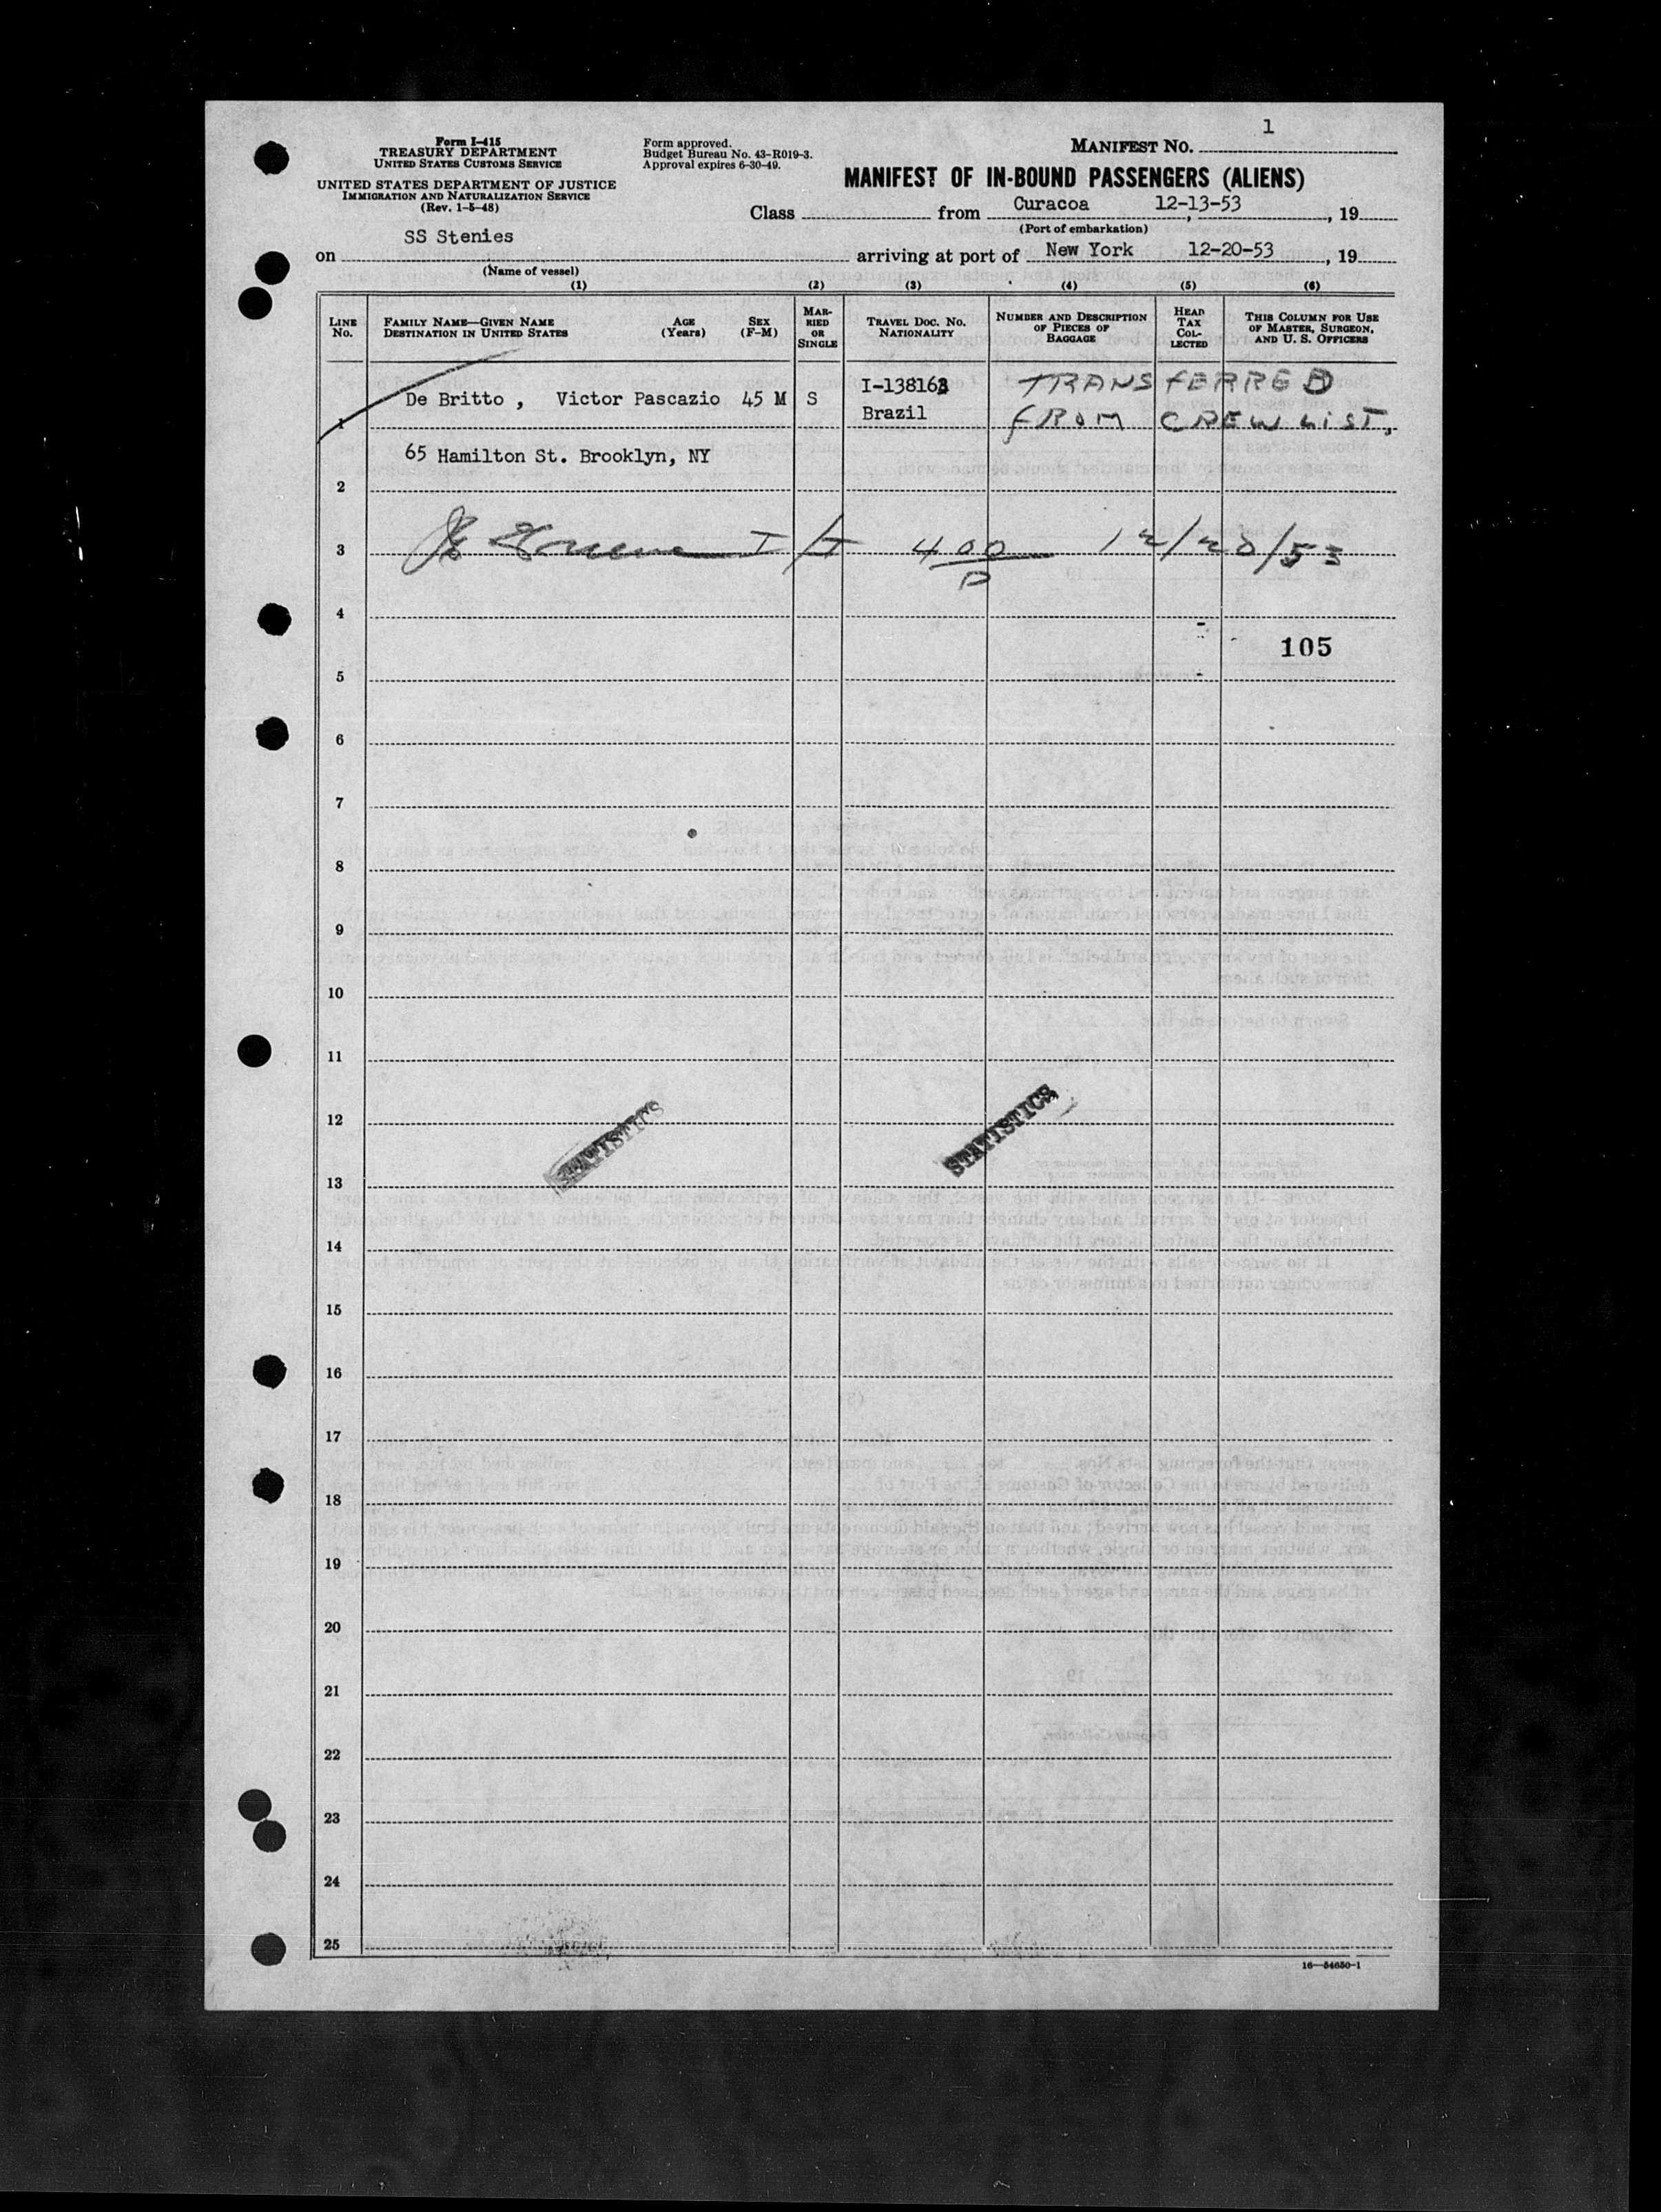 1
Form I-415
TREASURY DEPARTMENT
UNITED STATES CUSTOMS SERVICE
UNITED STATES DEPARTMENT OF JUSTICE
IMMIGRATION AND NATURALIZATION SERVICE
(Rev. 1-5-48)
Form approved.
Budget Bureau No. 43-R019-3.
Approval expires 6-30-49.
MANIFEST NO.
MANIFEST OF IN-BOUND PASSENGERS (ALIENS)
Class from Curacoa 12-13-53, 19
(Port of embarkation)
on SS Stenies arriving at port of New York 12-20-53, 19
(Name of vessel)
(1) (2) (3) (4) (5) (6)
LINE NO.
FAMILY NAME—GIVEN NAME
DESTINATION IN UNITED STATES
AGE (Years)
SEX (F-M)
MARRIED OR SINGLE
TRAVEL DOC. NO. NATIONALITY
NUMBER AND DESCRIPTION OF PIECES OF BAGGAGE
HEAD TAX COLLECTED
THIS COLUMN FOR USE OF MASTER, SURGEON, AND U. S. OFFICERS
1 De Britto , Victor Pascazio 45 M S I-138163 TRANSFERRED
Brazil FROM CREW LIST,
65 Hamilton St. Brooklyn, NY
2
3 400 12/20/53
D
4
105
5
6
7
8
9
10
11
12
STATISTICS STATISTICS
13
14
15
16
17
18
19
20
21
22
23
24
25
16—54650-1